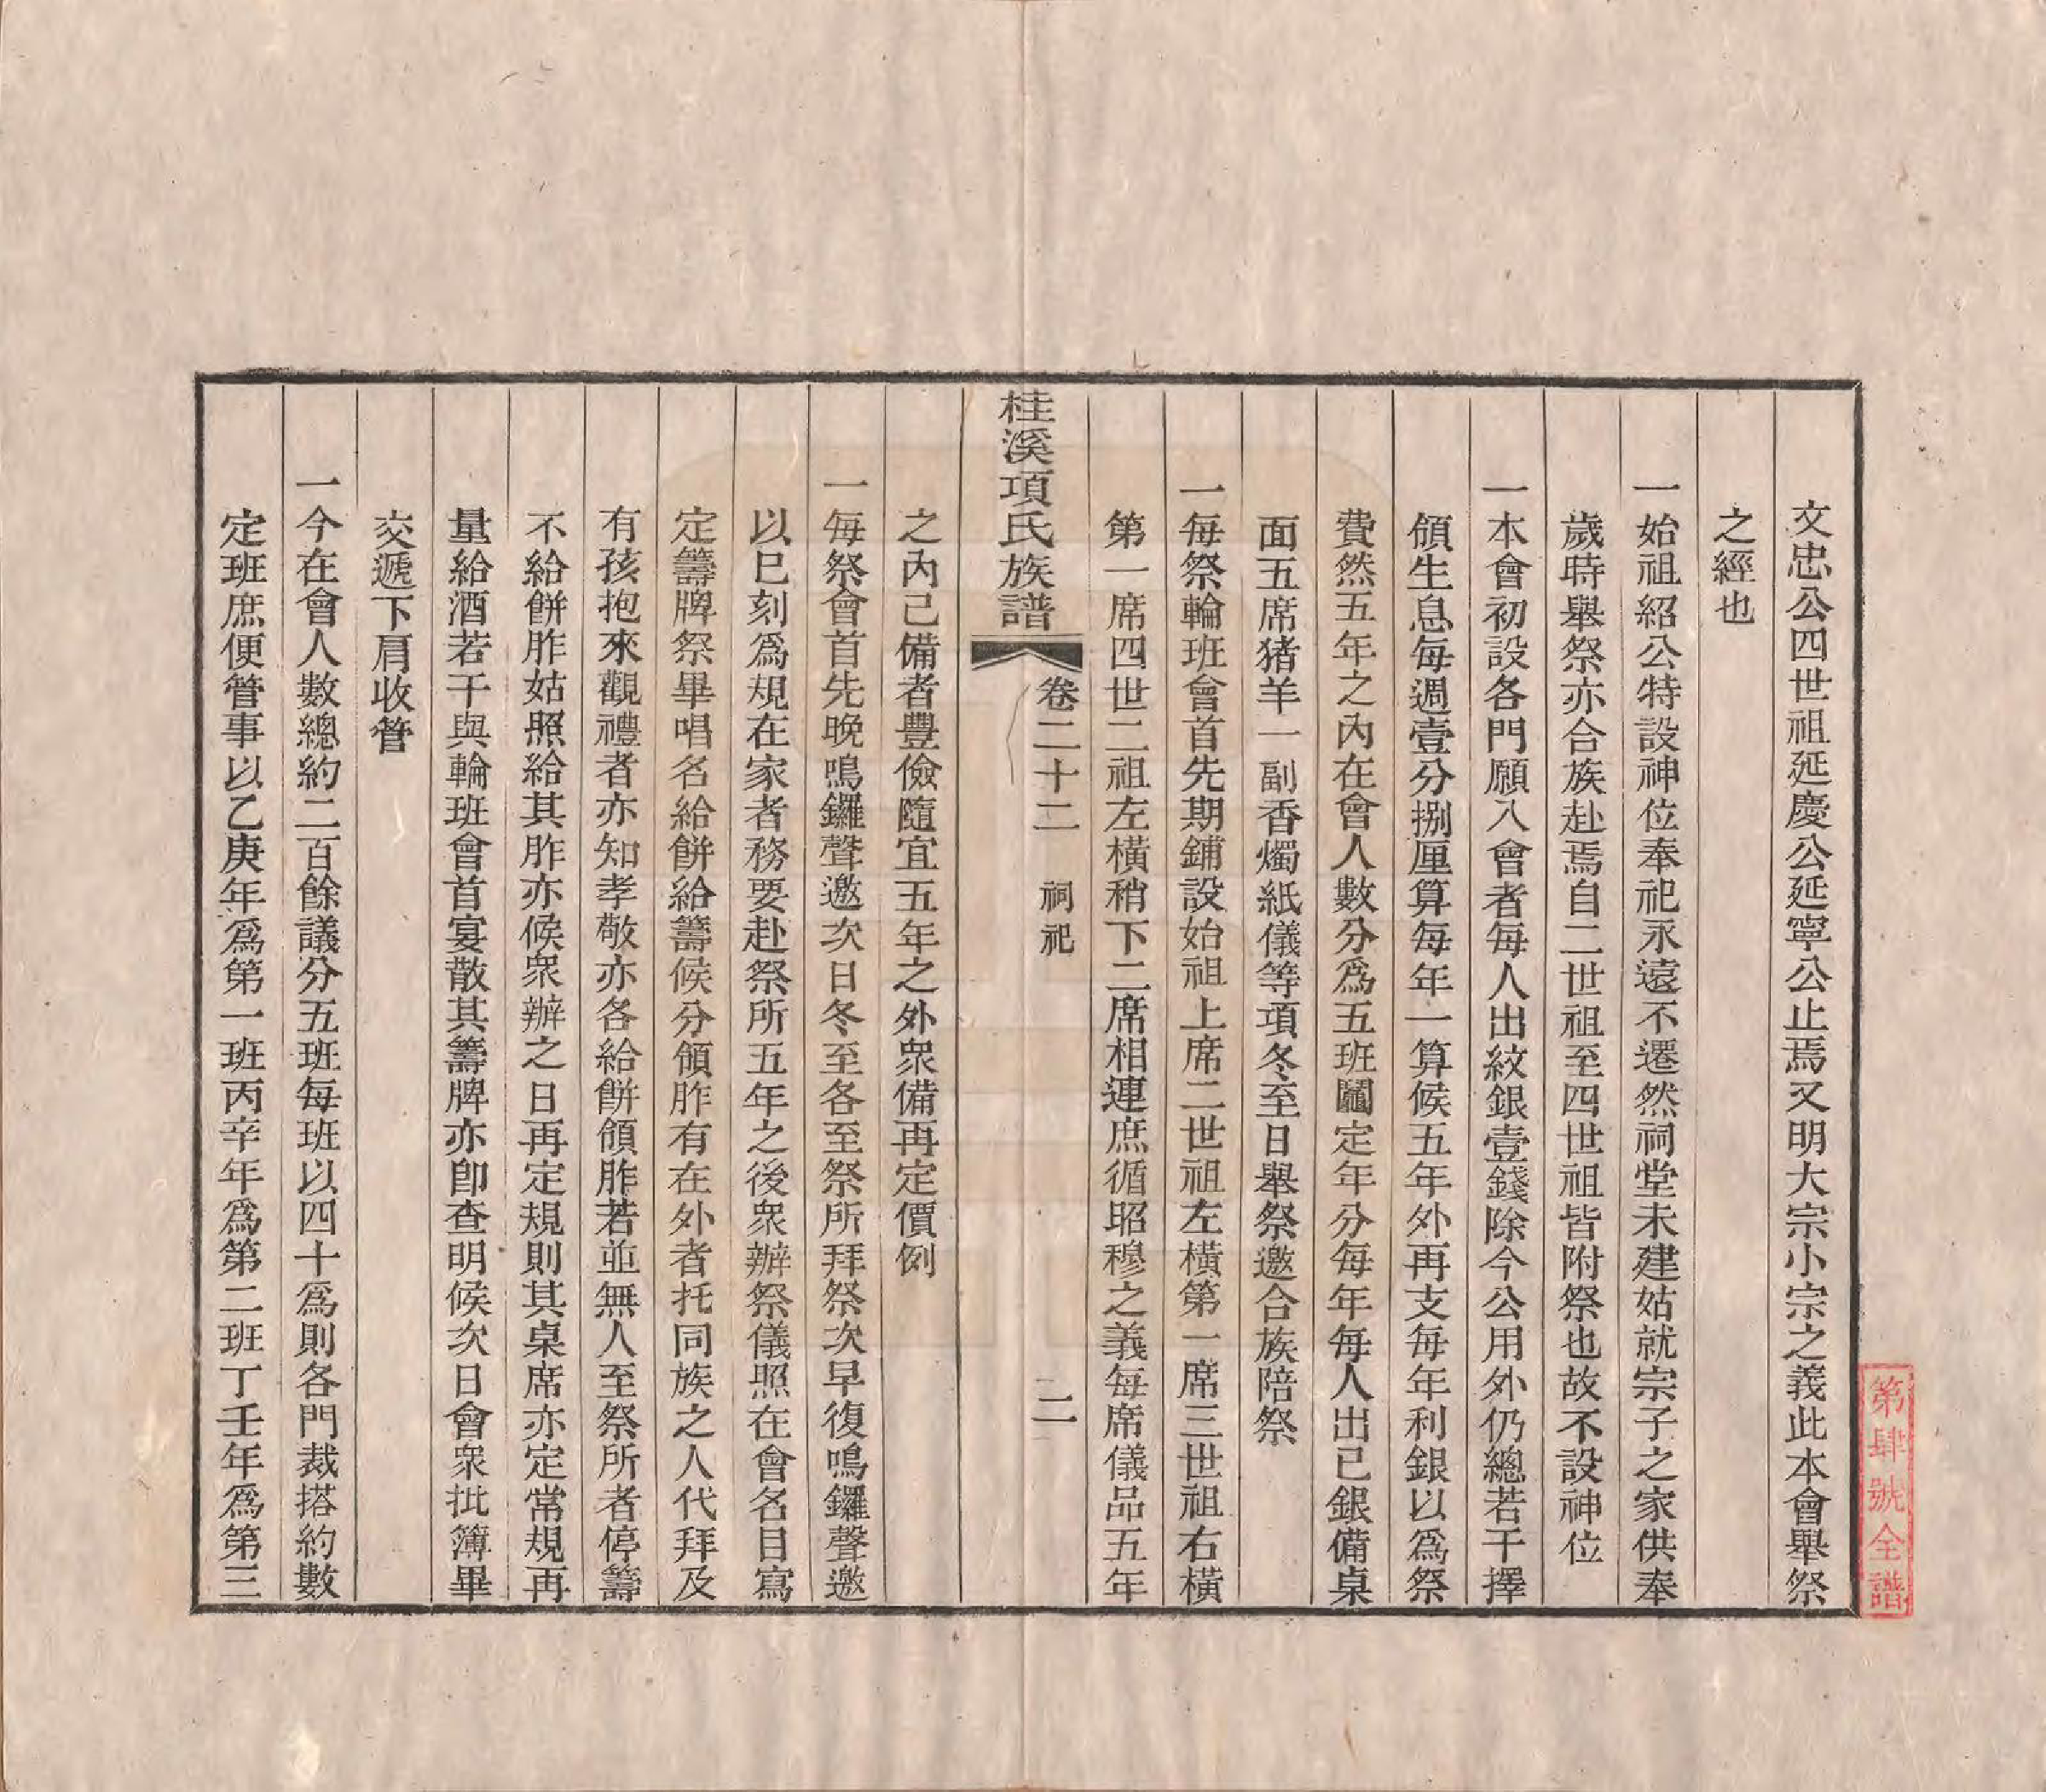 文忠公四世祖延慶公延寧公止焉又明大宗小宗之義此本會舉祭
之經也
一始祖紹公特設神位奉祀永遠不遷然祠堂未建姑就宗子之家供奉
歲時舉祭亦合族赴焉自二世祖至四世祖皆附祭也故不設神位
一本會初設各門願入會者每人出紋銀壹錢除今公用外仍總若干擇
領生息每週壹分捌厘算每年一算候五年外再支每年利銀以為祭
費然五年之內在會人數分為五班鬮定年分每年每人出己銀備桌
面五席猪羊一副香燭紙儀等項冬至日舉祭邀合族陪祭
一每祭輪班會首先期鋪設始祖上席二世祖左橫第一席三世祖右橫
第一席四世二祖左橫稍下二席相連庶循昭穆之義每席儀品五年
桂溪項氏族譜 卷二十二 祠祀 二
之內己備者豐儉隨宜五年之外衆備再定價例
一每祭會首先晚鳴鑼聲邀次日冬至各至祭所拜祭次早復鳴鑼聲邀
以巳刻為規在家者務要赴祭所五年之後衆辦祭儀照在會名目寫
定籌牌祭畢唱名給餅給籌候分領胙有在外者托同族之人代拜及
有孩抱來觀禮者亦知孝敬亦各給餅領胙若並無人至祭所者停籌
不給餅胙姑照給其胙亦候衆辦之日再定規則其桌席亦定常規再
量給酒若干與輪班會首宴散其籌牌亦卽查明候次日會衆批簿畢
交遞下肩收管
一今在會人數總約二百餘議分五班每班以四十為則各門裁搭約數
定班庶便管事以乙庚年為第一班丙辛年為第二班丁壬年為第三
第肆號全譜